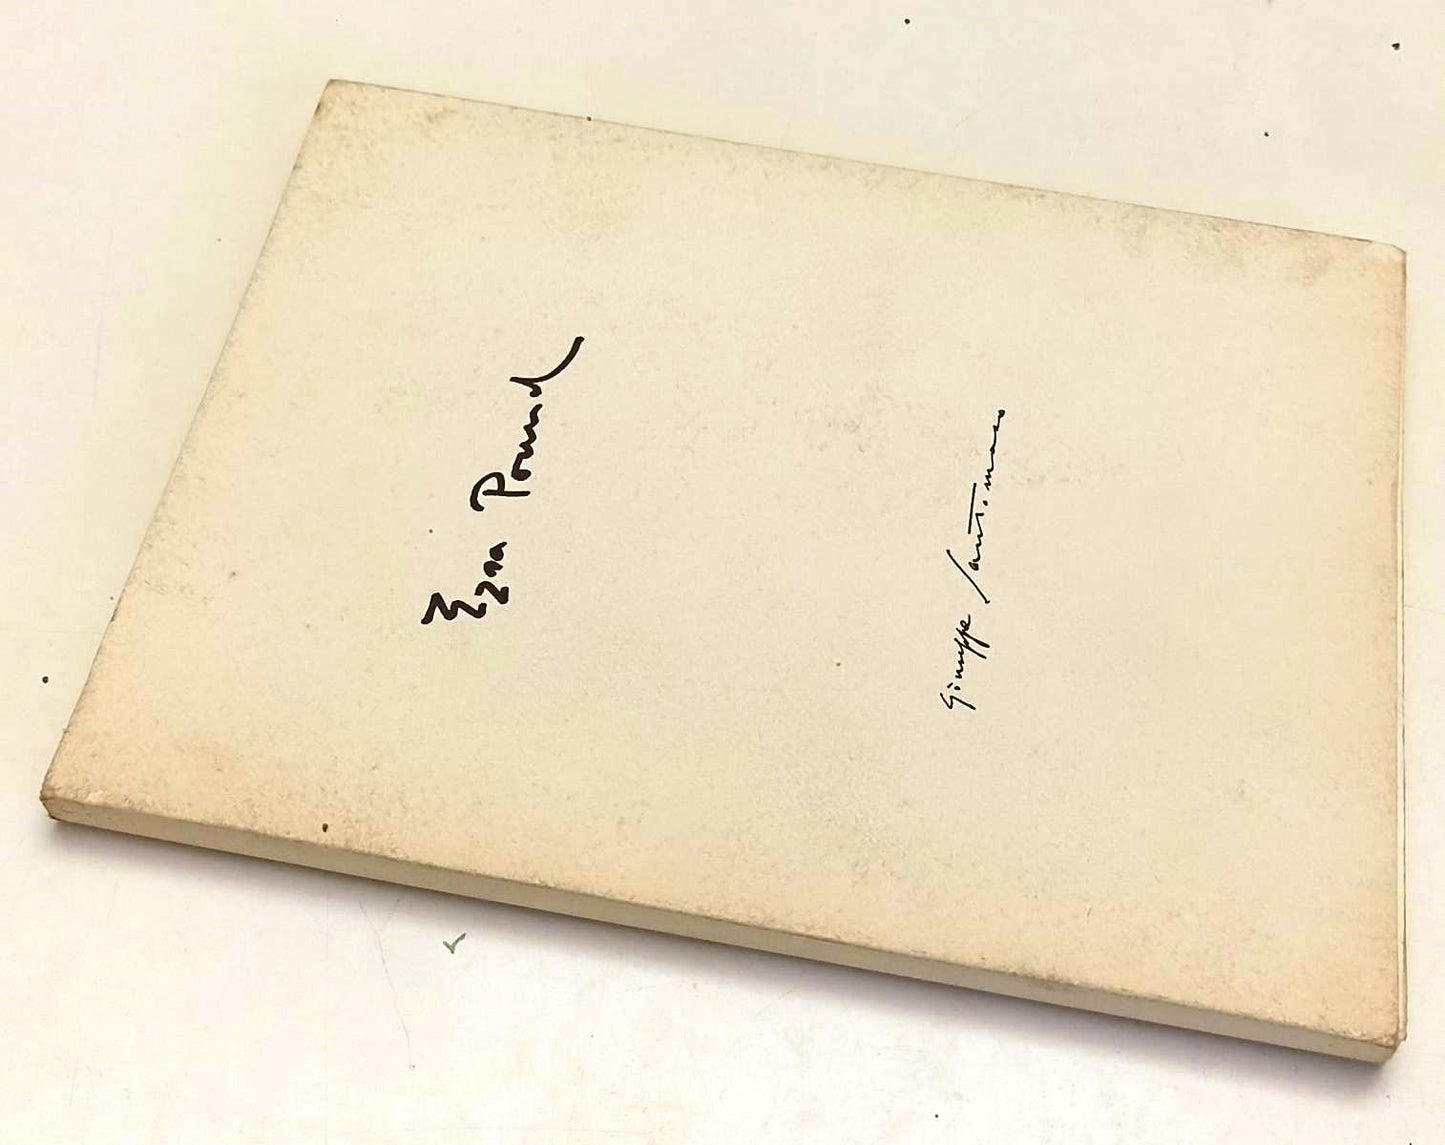 Ezra Pound
Giuseppe Santomaso